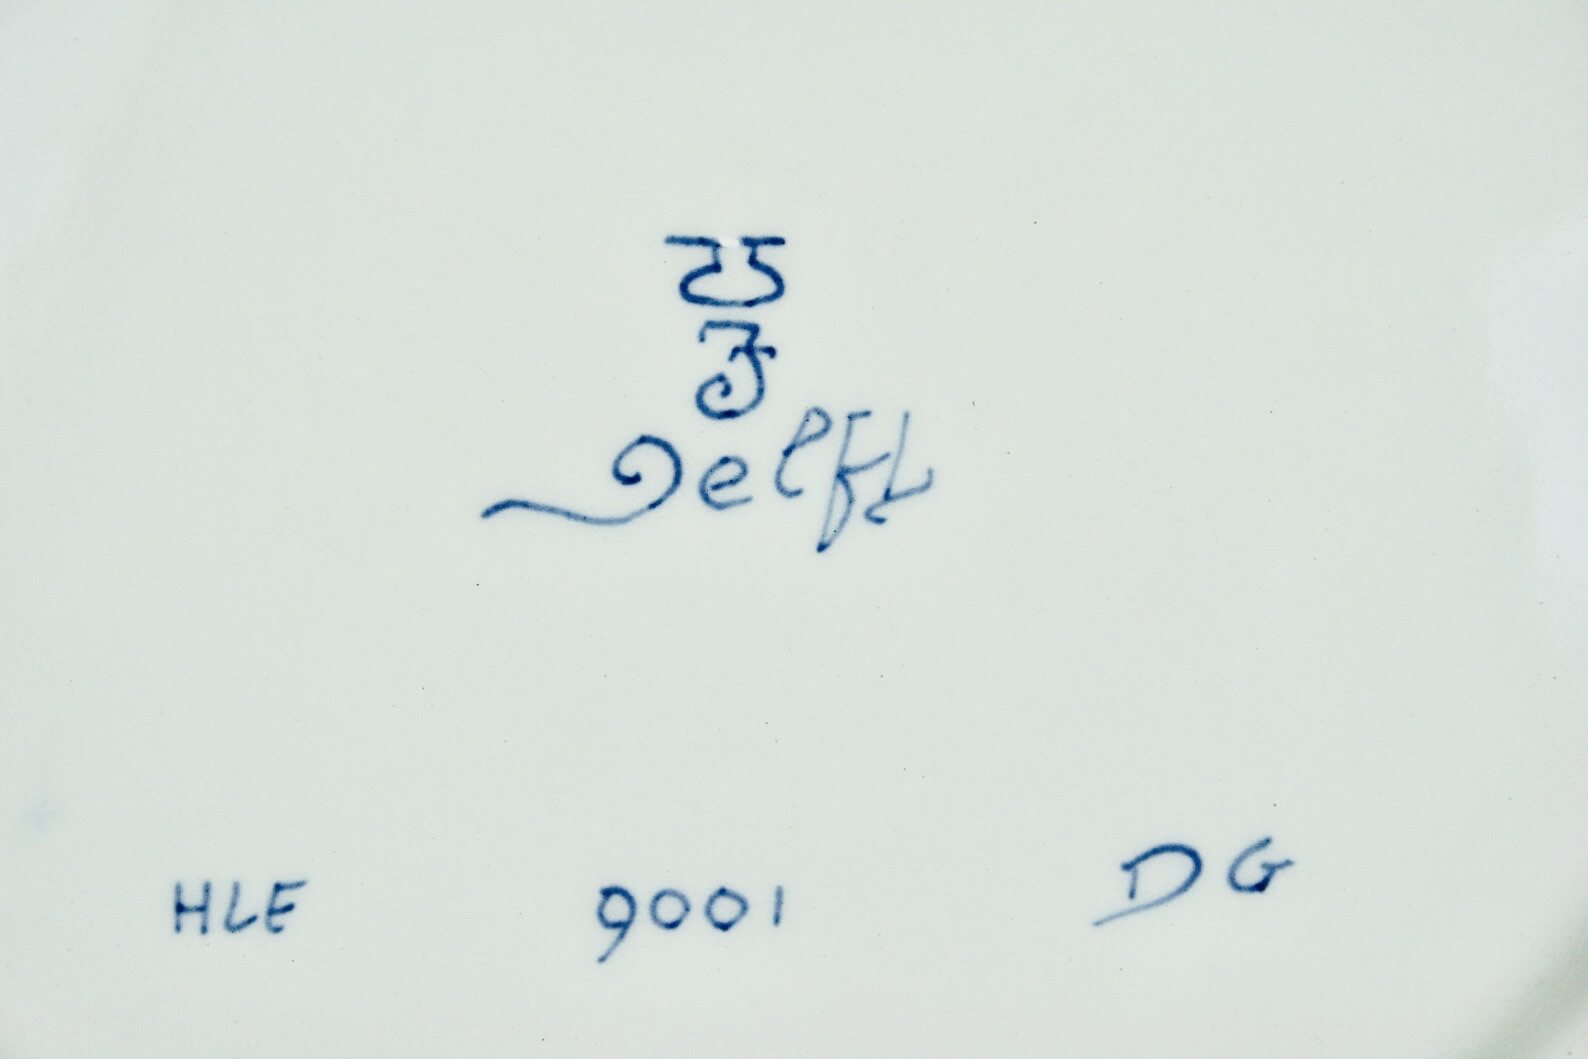 Delft
HLE 9001 DG